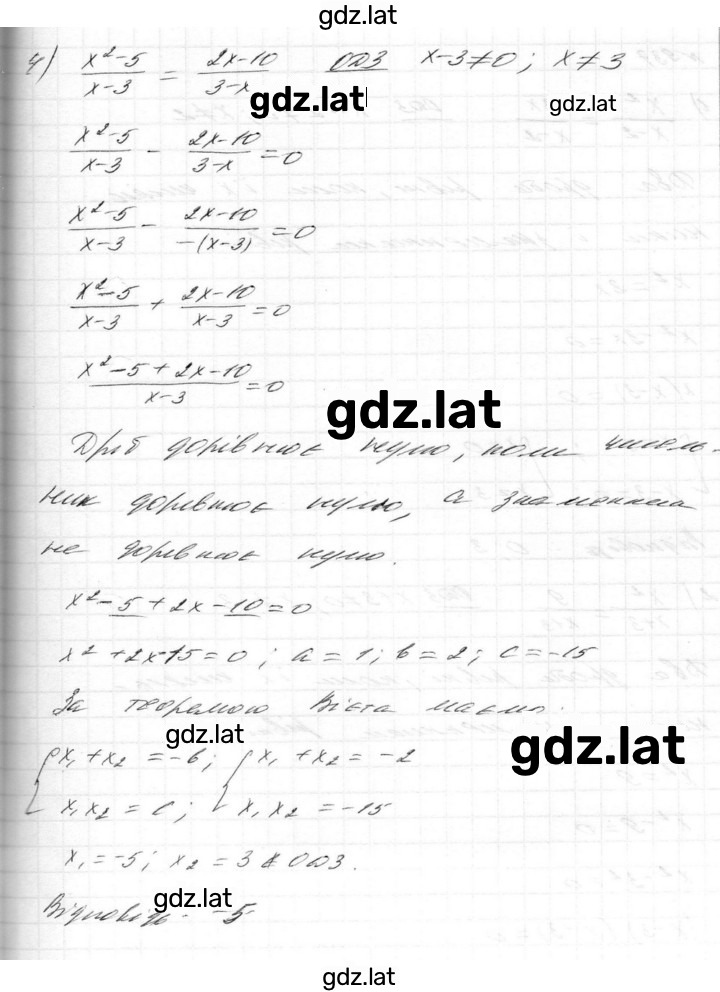 gdz.lat
4) (x²-5)/(x-3) = (2x-10)/(3-x) ОДЗ x-3≠0; x≠3
gdz.lat
gdz.lat
(x²-5)/(x-3) - (2x-10)/(3-x) = 0
(x²-5)/(x-3) - (2x-10)/(-(x-3)) = 0
(x²-5)/(x-3) + (2x-10)/(x-3) = 0
(x²-5+2x-10)/(x-3) = 0
gdz.lat
Дріб дорівнює нулю, коли чисель-
ник доревнює нулю, а знаменника
не доревнює нулю.
x²-5+2x-10=0
x²+2x-15=0; a=1; b=2; c=-15
За теоремою Вієта маємо:
gdz.lat
gdz.lat
{x₁+x₂=-b; {x₁+x₂=-2
x₁x₂=c; x₁x₂=-15
x₁=-5; x₂=3∉ОДЗ.
gdz.lat
Відповідь: -5
gdz.lat